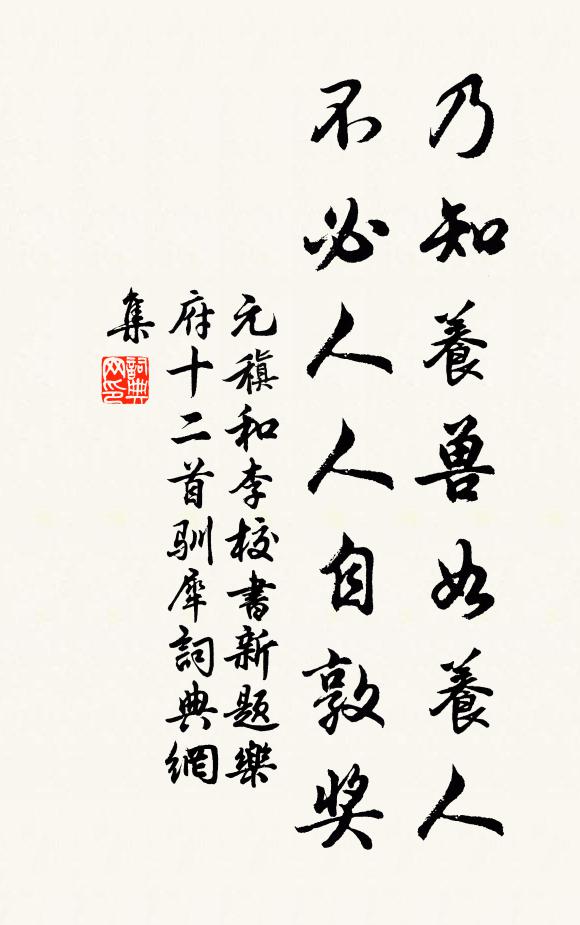 乃知養兽如養人
不必人人自敦奖
元稹和李校書新题樂
府十二首驯犀詞典網
集
詞典
网印